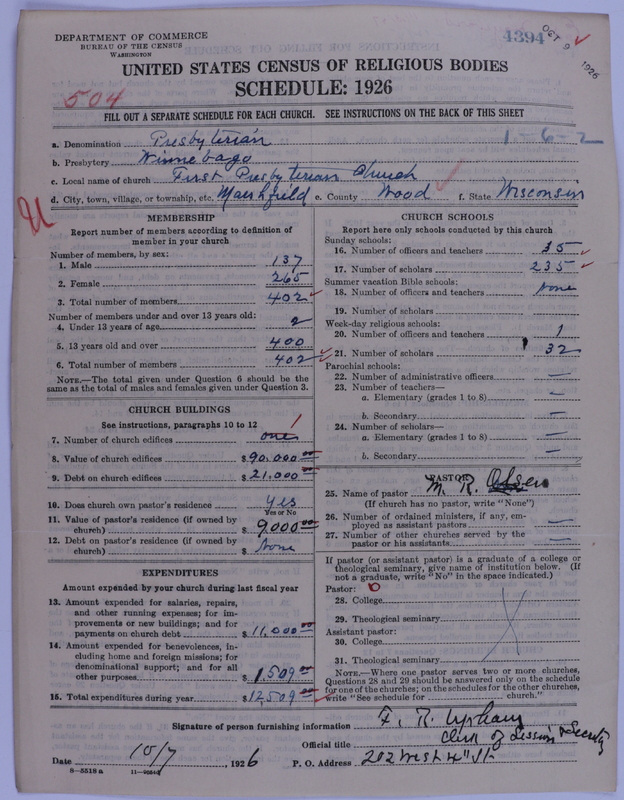 DEPARTMENT OF COMMERCE
BUREAU OF THE CENSUS
WASHINGTON
4394
OCT 9 1926
UNITED STATES CENSUS OF RELIGIOUS BODIES
SCHEDULE: 1926
504
FILL OUT A SEPARATE SCHEDULE FOR EACH CHURCH. SEE INSTRUCTIONS ON THE BACK OF THIS SHEET
a. Denomination Presbyterian 1-6-2
b. Presbytery Winnebago
c. Local name of church First Presbyterian Church
d. City, town, village, or township, etc. Marshfield e. County Wood f. State Wisconsin
MEMBERSHIP
Report number of members according to definition of
member in your church
Number of members, by sex:
1. Male 137
2. Female 265
3. Total number of members 402
Number of members under and over 13 years old:
4. Under 13 years of age 2
5. 13 years old and over 400
6. Total number of members 402
NOTE.—The total given under Question 6 should be the
same as the total of males and females given under Question 3.
CHURCH BUILDINGS
See instructions, paragraphs 10 to 12
7. Number of church edifices one
8. Value of church edifices $90,000 00
9. Debt on church edifices $21,000 00
10. Does church own pastor's residence yes
Yes or No
11. Value of pastor's residence (if owned by
church) $9,000 00
12. Debt on pastor's residence (if owned by
church) $ None
EXPENDITURES
Amount expended by your church during last fiscal year
13. Amount expended for salaries, repairs,
and other running expenses; for im-
provements or new buildings; and for
payments on church debt $11,000 00
14. Amount expended for benevolences, in-
cluding home and foreign missions; for
denominational support; and for all
other purposes $1,509 00
15. Total expenditures during year $12,509 00
CHURCH SCHOOLS
Report here only schools conducted by this church
Sunday schools:
16. Number of officers and teachers 35
17. Number of scholars 235
Summer vacation Bible schools:
18. Number of officers and teachers None
19. Number of scholars
Week-day religious schools:
20. Number of officers and teachers 1
21. Number of scholars 32
Parochial schools:
22. Number of administrative officers —
23. Number of teachers—
a. Elementary (grades 1 to 8) —
b. Secondary —
24. Number of scholars—
a. Elementary (grades 1 to 8) —
b. Secondary —
PASTOR
25. Name of pastor M. R. Olsen
(If church has no pastor, write "None")
26. Number of ordained ministers, if any, em-
ployed as assistant pastors —
27. Number of other churches served by the
pastor or his assistants —
If pastor (or assistant pastor) is a graduate of a college or
theological seminary, give name of institution below. (If
not a graduate, write "No" in the space indicated.)
Pastor: 0
28. College
29. Theological seminary
Assistant pastor:
30. College
31. Theological seminary
NOTE.—Where one pastor serves two or more churches,
Questions 28 and 29 should be answered only on the schedule
for one of the churches; on the schedules for the other churches,
write "See schedule for church."
Signature of person furnishing information F. R. Upham
Official title Clerk of Session & Secretary
Date 10/7, 1926 P. O. Address 202 West 4" St
8—5518 a